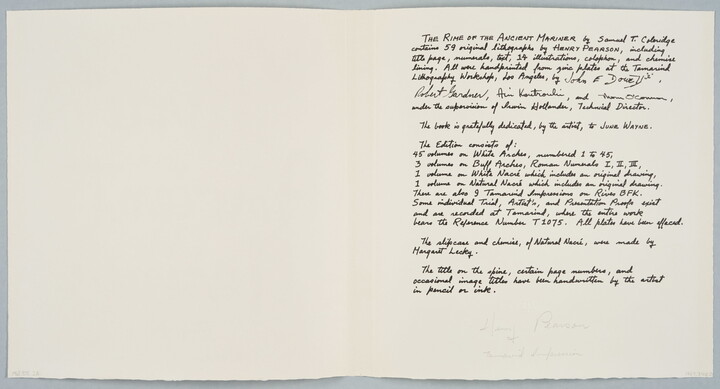 THE RIME OF THE ANCIENT MARINER by Samuel T. Coleridge
contains 59 original lithographs by HENRY PEARSON, including
title page, numerals, text, 14 illustrations, colophon, and chemise
lining. All were handprinted from zinc plates at the Tamarind
Lithography Workshop, Los Angeles, by John E Dowell Jr.,
Robert Gardner, and
under the supervision of Irwin Hollander, Technical Director.
The book is gratefully dedicated, by the artist, to JUNE WAYNE.
The Edition consists of:
45 volumes on White Arches, numbered 1 to 45,
3 volumes on Buff Arches, Roman Numerals I, II, III,
1 volume on White Nacré which includes an original drawing,
1 volume on Natural Nacré which includes an original drawing.
There are also 9 Tamarind Impressions on Rives BFK.
Some individual Trial, Artist's, and Presentation Proofs exist
and are recorded at Tamarind, where the entire work
bears the Reference Number T1075. All plates have been effaced.
The slipcase and chemise, of Natural Nacré, were made by
Margaret Lecky.
The title on the spine, certain page numbers, and
occasional image titles have been handwritten by the artist
in pencil or ink.
Henry Pearson
Tamarind Impression